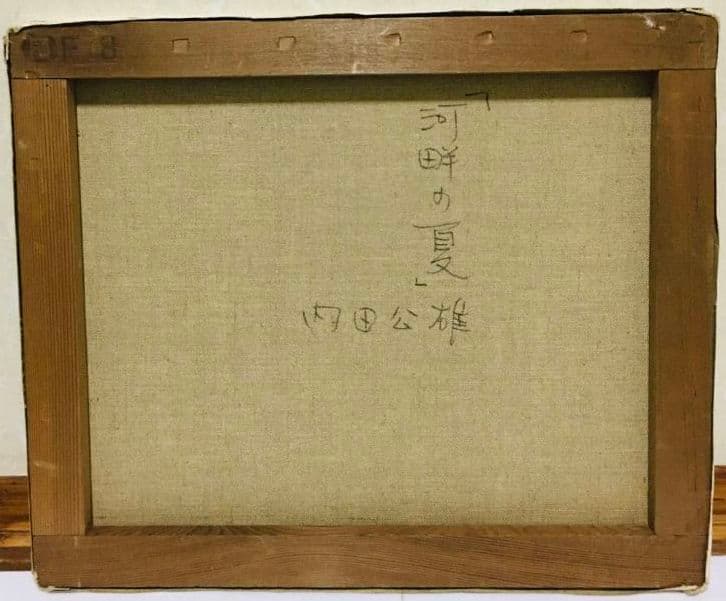 F 8
「河畔の夏」
内田公雄